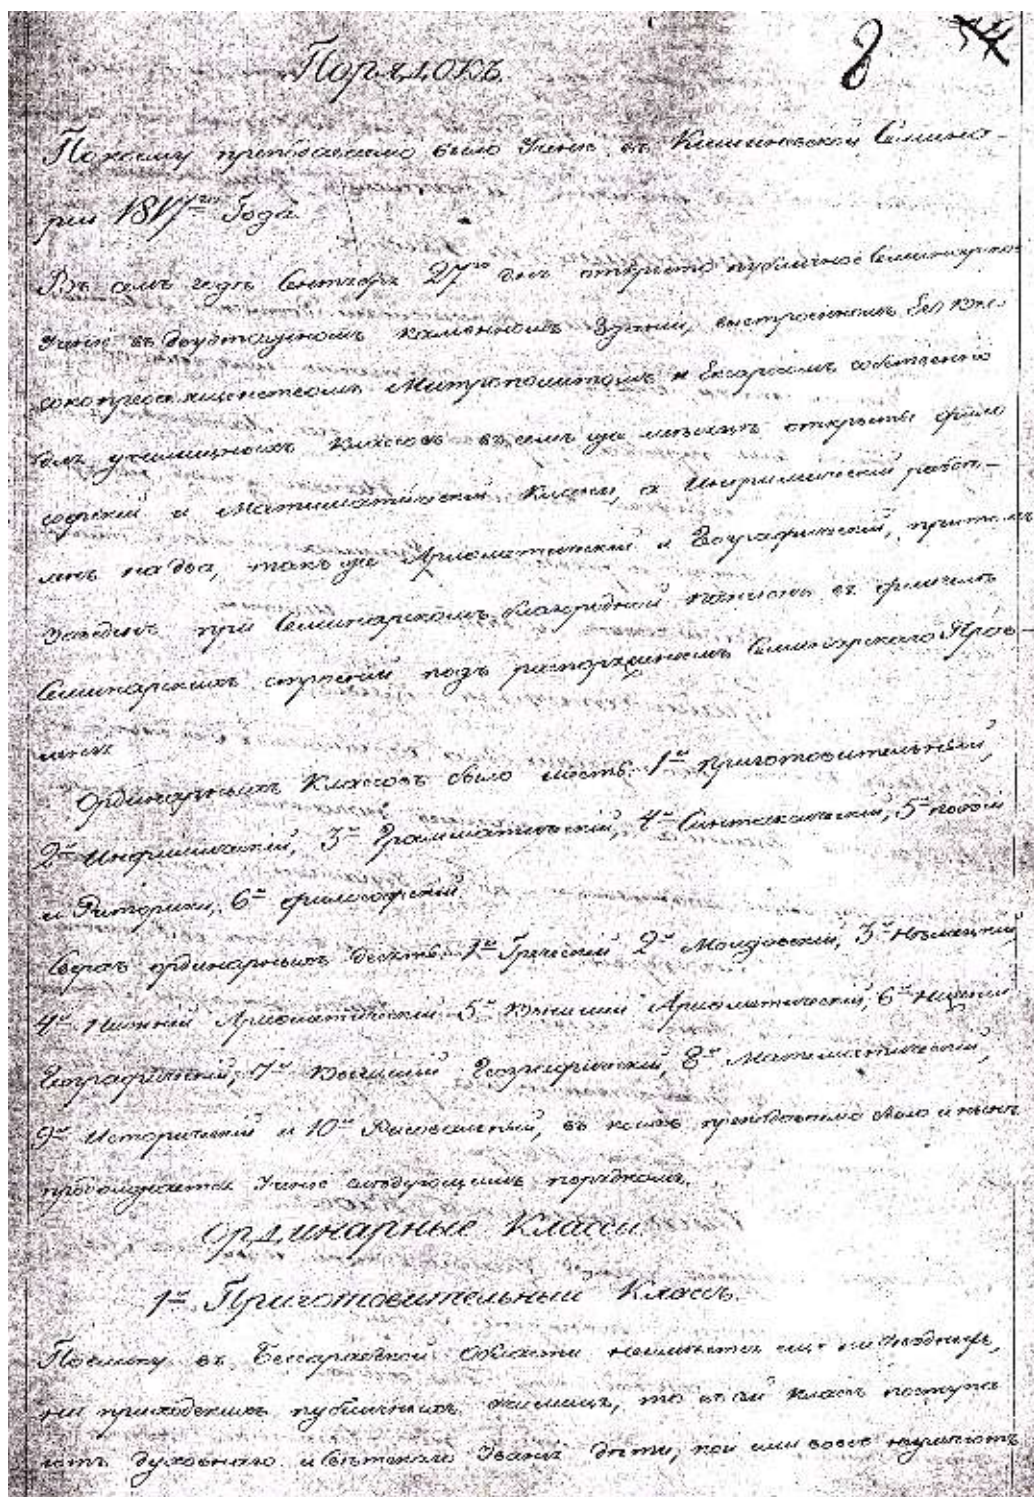 8
Порядокъ.
Покоему преподаваемо было Учение въ Кишиневской Семина-
рии 1817го Года.
Въ семъ годѣ Сентября 27го дня открыто публичное Семинарское
Учение въ двуэтажномъ каменномъ Здании, выстроенномъ Его Вы-
сокопреосвященствомъ Митрополитомъ и Екзархомъ собственно
для училищныхъ Классовъ въ семъ же мѣсяцѣ открыты фило
софский и Математический Классы, а Инфимический раздѣ-
ленъ на два, такъ же Арифметический и Географический, притомъ
Заведенъ при Семинарскомъ благородный пансионъ въ флигелѣ
Семинарскихъ строений подъ распоряжениемъ Семинарскаго Прав-
ления
Ординарныхъ Классовъ было шесть: 1й Приготовительный,
2й Инфимический, 3й Грамматический, 4й Синтаксический, 5й поезии
и Риторики, 6й философский.
Сверхъ ординарныхъ десять: 1й Греческий 2й Молдовский, 3й Нѣмецкий
4й Нижний Арифметический 5й Высший Арифметический, 6й Нижний
Географический, 7й Высший Географический, 8й Математический,
9й Исторический и 10й Рисовальный, въ коихъ преподаваемо было и нынѣ
продолжается Учение слѣдующимъ порядкомъ.
Ординарные Классы.
1й Приготовительный Классъ.
Поелику въ Бессарабской Области неимѣется еще ни уѣздныхъ,
ни приходскихъ публичныхъ училищъ, то въ сей классъ поступа
ютъ духовнаго и свѣтскаго Звания дѣти, кои или вовсе неумѣютъ